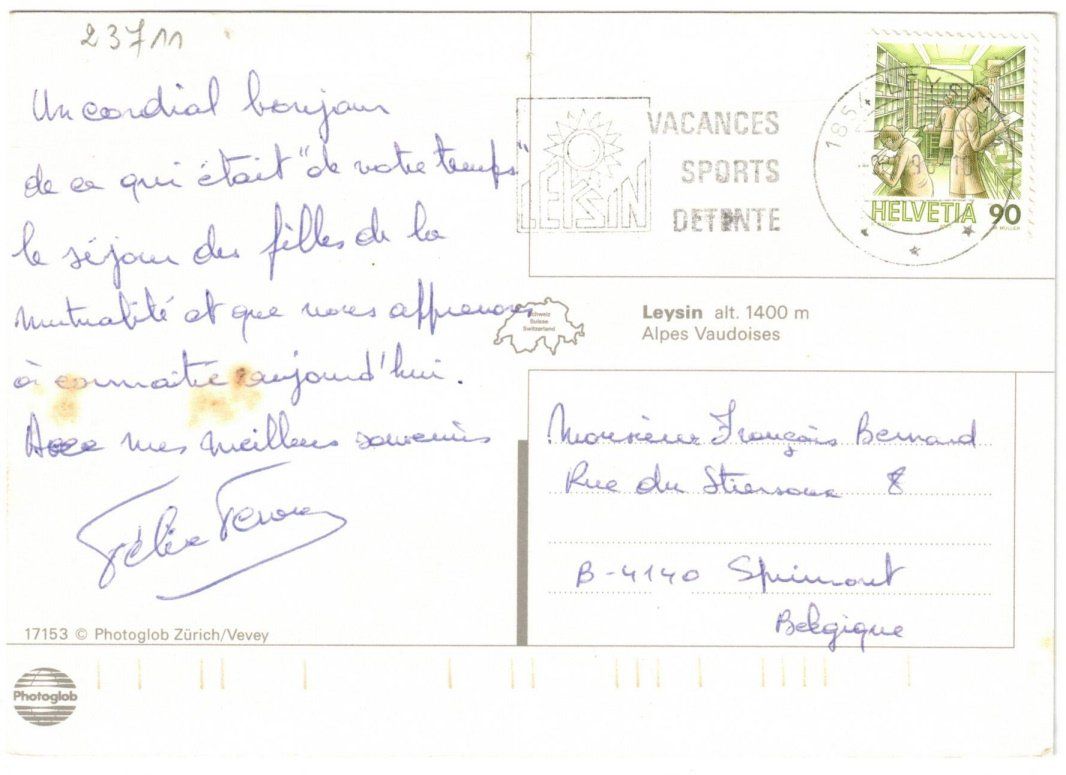 23711
Un cordial bonjour
de ce qui était "de votre temps"
le séjour des filles de la
mutualité et que nous apprenons
à connaître aujourd'hui.
Avec mes meilleurs souvenirs
Félix
17153 © Photoglob Zürich/Vevey
Photoglob
LEYSIN
VACANCES
SPORTS
DETENTE
1854 LEYSIN
HELVETIA 90
Schweiz
Suisse
Switzerland
Leysin alt. 1400 m
Alpes Vaudoises
Monsieur François Bernard
Rue du 8
B-4140 Sprimont
Belgique